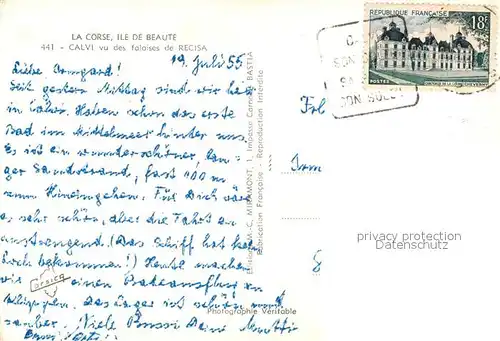 LA CORSE, ILE DE BEAUTÉ
441 - CALVI vu des falaises de RECISA
19. Juli 55
Liebe Irmgard!
Seit gestern Mittag sind wir hier
in Calvi. Haben schon das erste
Bad im Mittelmeer hinter uns.
Es ist ein wunderschöner lan-
ger Sandstrand, fast 100 m
zum Hineingehen. Für Dich wäre
es sehr schön, aber die Fahrt an-
strengend. (Das Schiff hat kein
Loch bekommen!) Heute machen
wir einen Bateauausflug zu
Das Lager ist schön und
sauber. Viele Bussi Deine Mutti
Editions M.-C. MIRAMONT, 1, Impasse Carnot, BASTIA
Fabrication Française - Reproduction Interdite
Photographie Véritable
RÉPUBLIQUE FRANÇAISE 18F
POSTES
Frl
Irm
8
privacy protection
Datenschutz